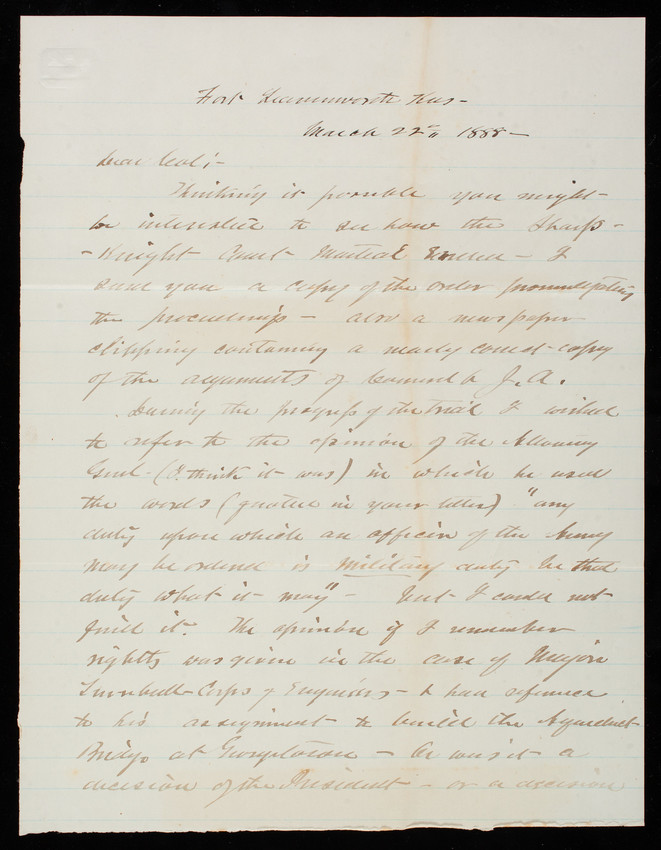 Fort Leavenworth Kas -
March 22nd 1888 -
Dear Col; -
Thinking it possible you might
be interested to see how the Sharp -
- Knight Court Martial ended - I
send you a copy of the order promulgating
the proceedings - also a newspaper
clipping containing a nearly correct copy
of the arguments of Counsel & J. A.
During the progress of the trial I wished
to refer to the opinion of the Attorney
Genl - (I think it was) in which he used
the words (quoted in your letter) "any
duty upon which an officer of the Army
may be ordered is military duty be that
duty what it may" - but I could not
find it. The opinion if I remember
rightly was given in the case of Major
Turnbull - Corps of Engineers - & had reference
to his assignment to build the Aqueduct
Bridge at Georgetown - Or was it a
decision of the President - or a decision